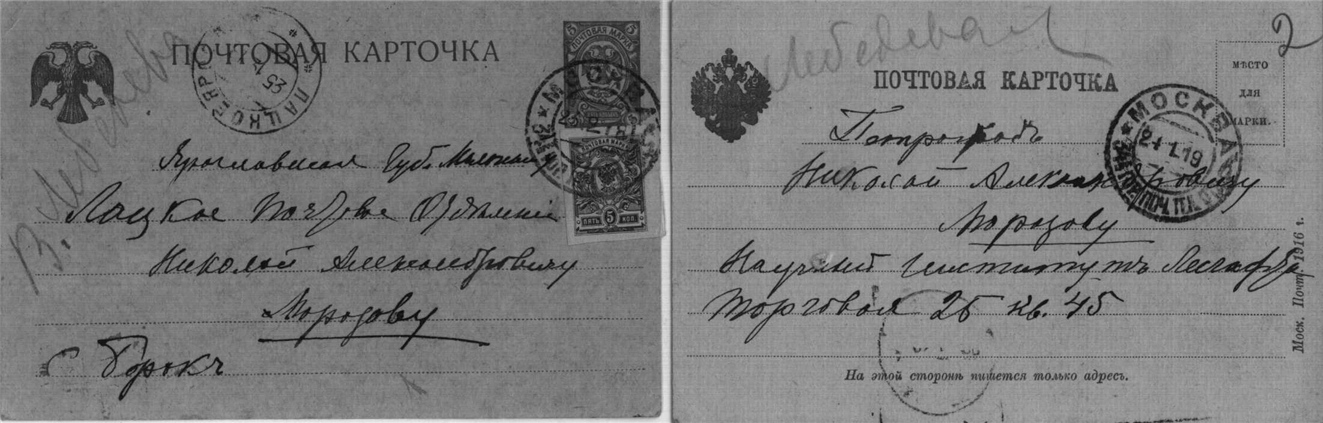 В. Лебедева
ПОЧТОВАЯ КАРТОЧКА
ЛАЦКОЕ ЯРО
25
5 5
ПОЧТОВАЯ МАРКА
МОСКВА
ПОЧТОВАЯ МАРКА
5 ПЯТЬ КОП. 5
Ярославская Губ.
Лацкое Почтовое Отделение
Николай Александровичу
Морозову
С Борокъ
Лебедева
2
МѢСТО
ДЛЯ
МАРКИ.
ПОЧТОВАЯ КАРТОЧКА
МОСКВА
24 1 19
Петроградъ
Николай Александровичу
Морозову
Научный институтъ Лесгафта
Торговая 25 кв. 45
На этой сторонѣ пишется только адресъ.
Моск. Почт. 1916 г.